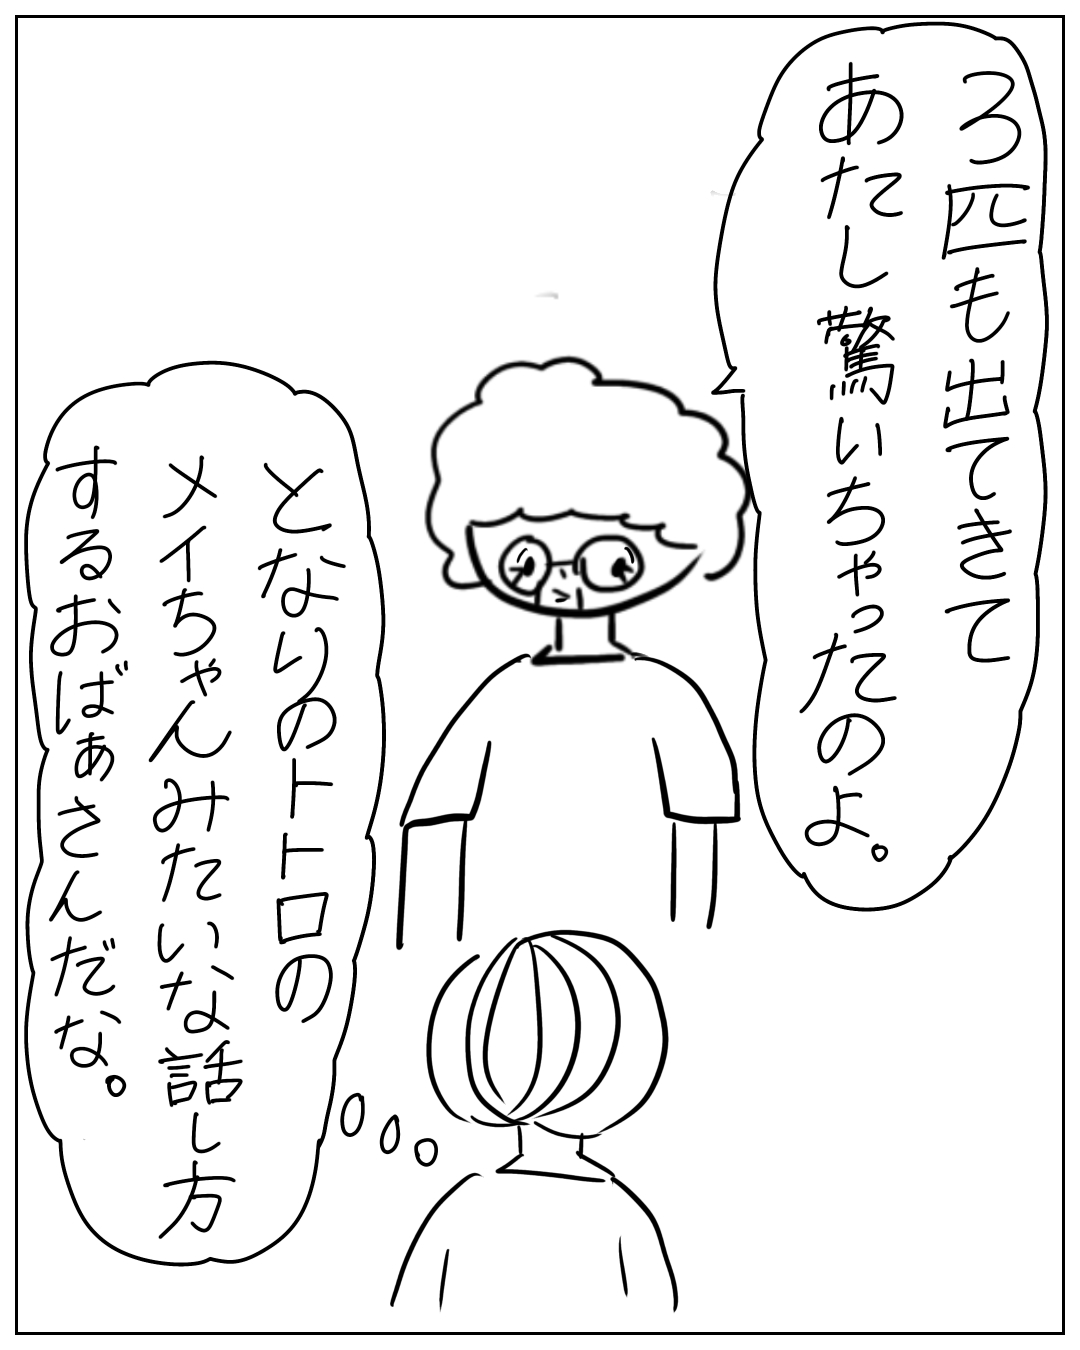 3匹も出てきて
あたし驚いちゃったのよ。
となりのトトロの
メイちゃんみたいな話し方
するおばぁさんだな。